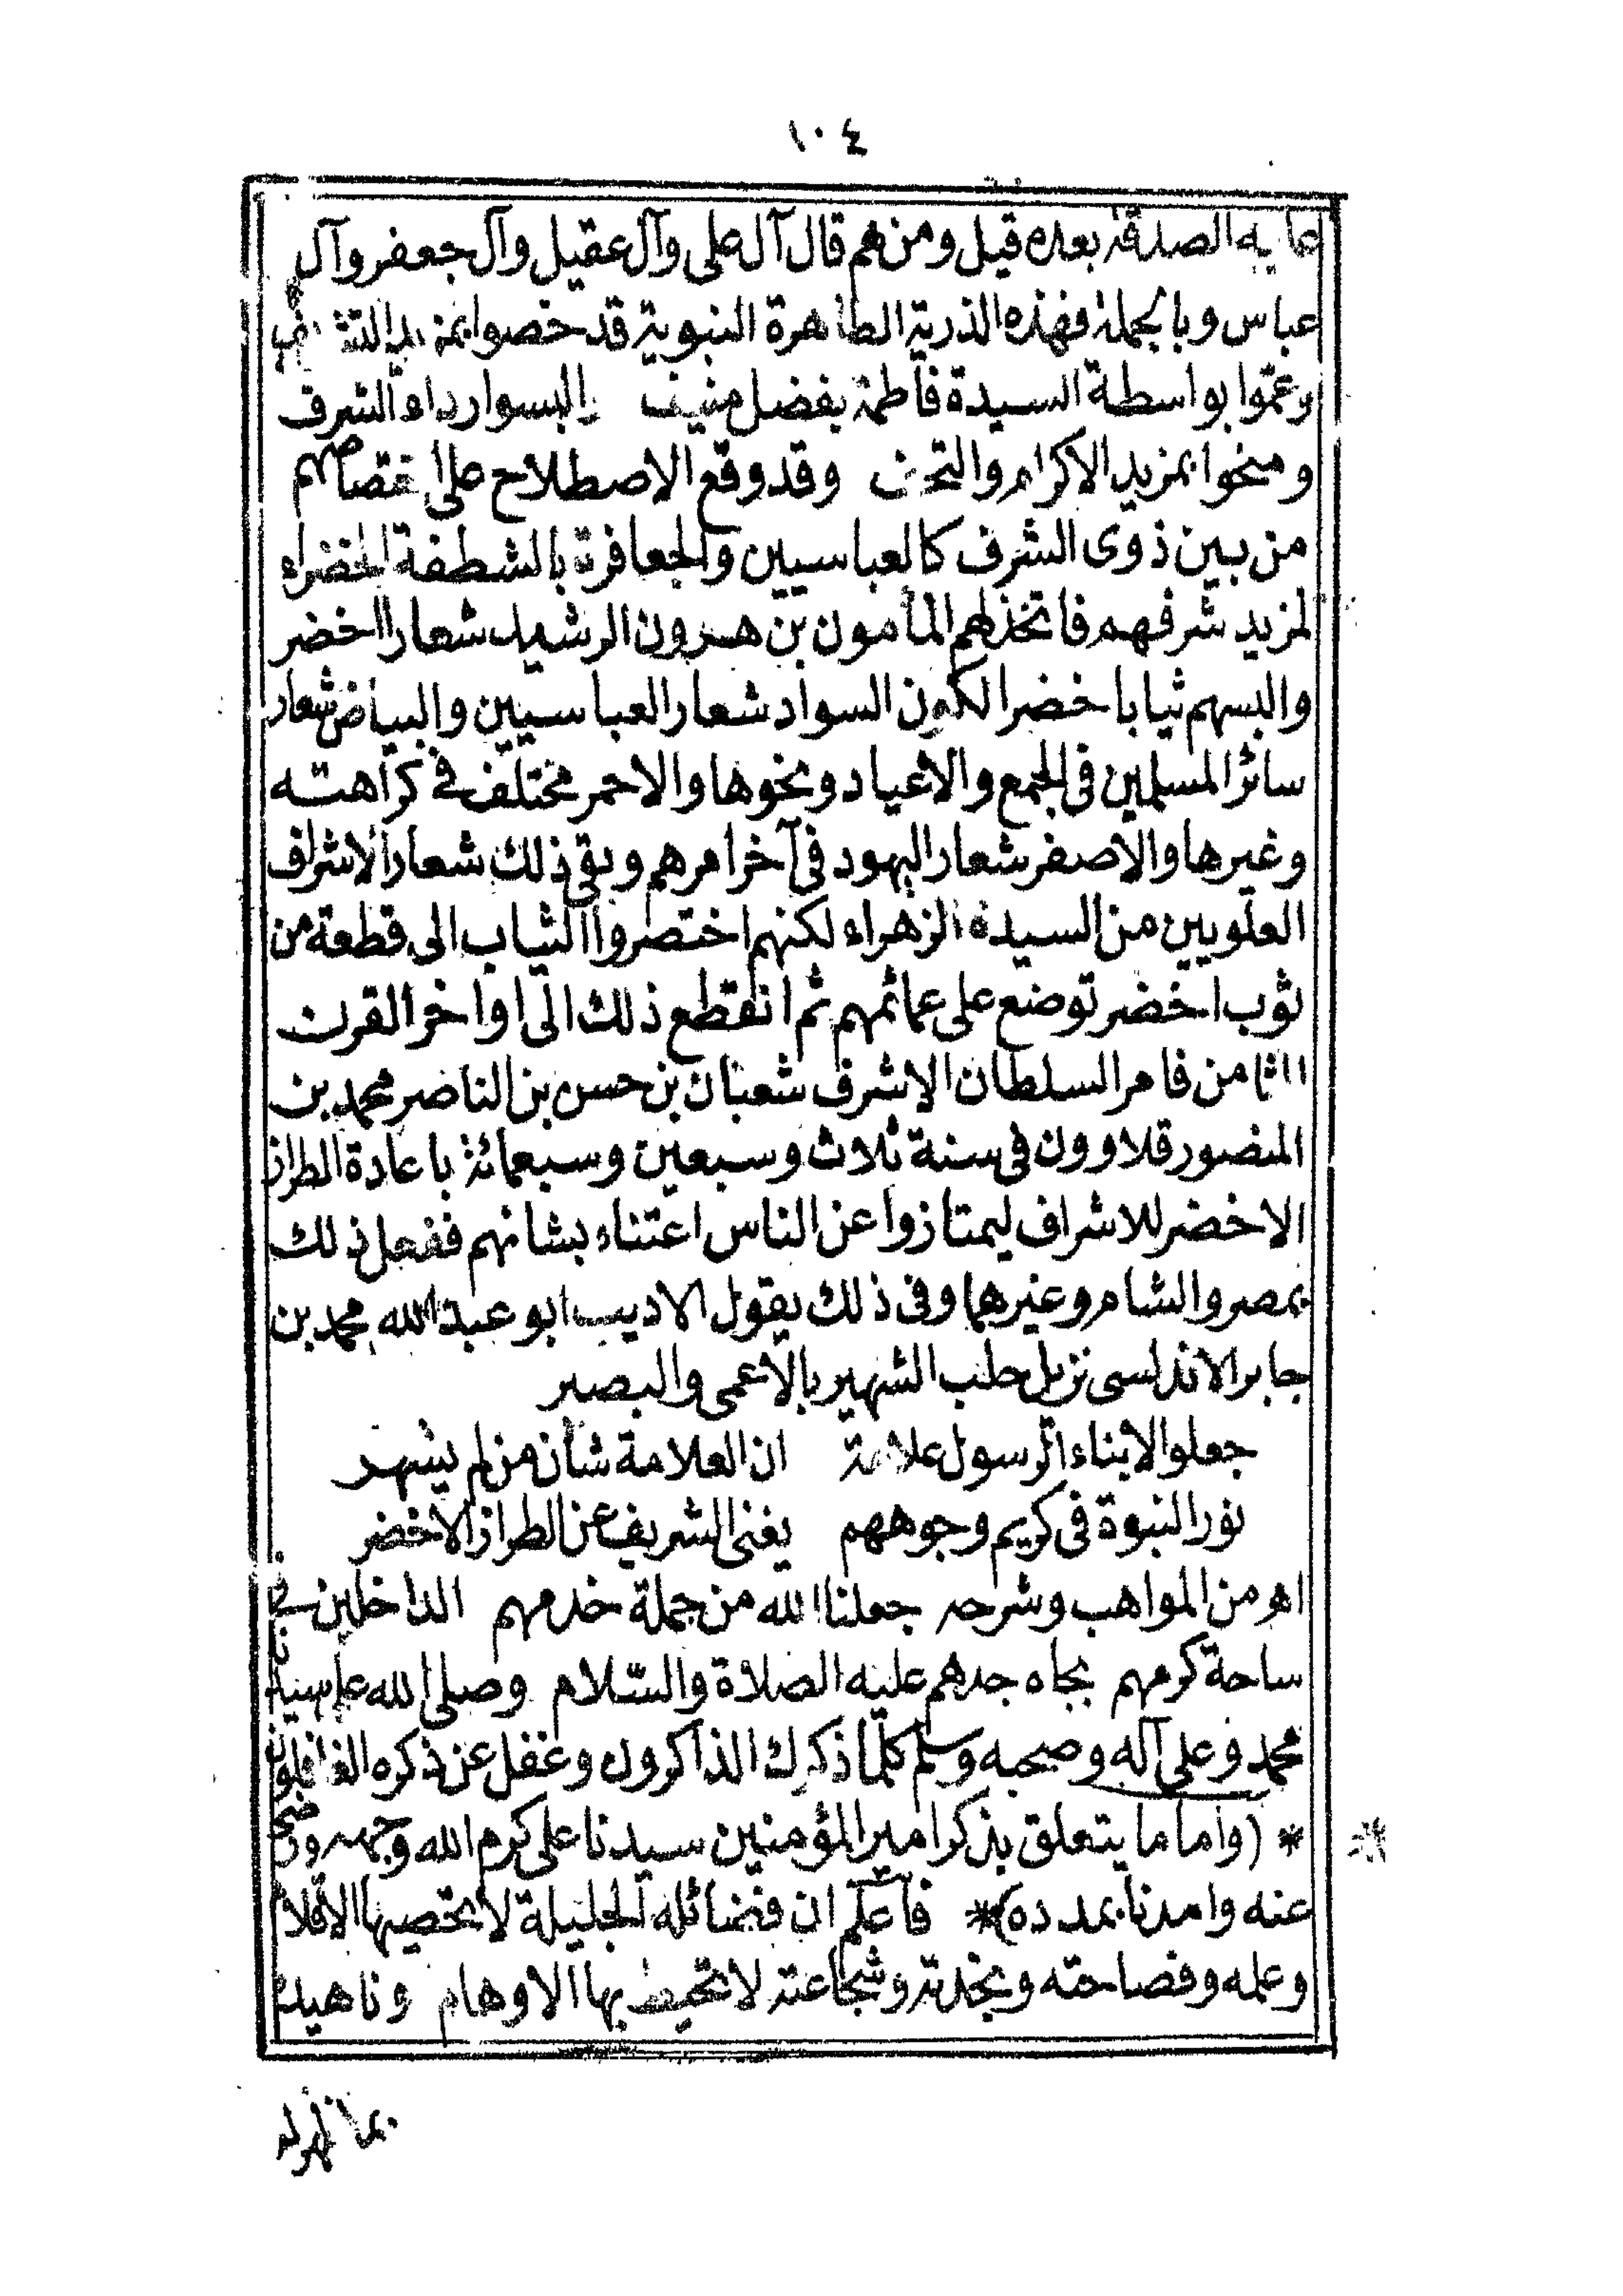 ١٠٤
عليه الصدقة بعده قيل ومن هم قال آل على وآل عقيل وآل جعفر وآل
عباس وبالجملة فهذه الذرية الطاهرة النبوية قد خصوا بمزيد التشريف
وعمّوا بواسطة السيدة فاطمة بفضل منيف والبسوا رداء الشرف
ومنحوا بمزيد الاكرام والتحف وقد وقع الاصطلاح على اختصاصهم
من بين ذوى الشرف كالعباسيين والجعافرة بالشطفة الخضراء
لمزيد شرفهم فاتخذ لهم المأمون بن هرون الرشيد شعارا اخضر
والبسهم ثيابا خضرا لكون السواد شعار العباسيين والبياض شعار
سائر المسلمين فى الجمع والاعياد ونحوها والاحمر مختلف فى كراهته
وغيرها والاصفر شعار اليهود فى آخر امرهم وبقى ذلك شعار الاشراف
العلويين من السيدة الزهراء لكنهم اختصروا الثياب الى قطعة من
ثوب اخضر توضع على عمائمهم ثم انقطع ذلك الى اواخر القرن
الثامن فامر السلطان الاشرف شعبان بن حسن بن الناصر محمد بن
المنصور قلاوون فى سنة ثلاث وسبعين وسبعمائة باعادة الطراز
الاخضر للاشراف ليمتازوا عن الناس اعتناء بشانهم ففعل ذلك
بمصر والشام وغيرهما وفى ذلك يقول الاديب ابو عبد الله محمد بن
جابر الاندلسى نزيل حلب الشهير بالاعمى والبصير
جعلوا لابناء الرسول علامة ان العلامة شأن من لم يشهر
نور النبوة فى كريم وجوههم يغنى الشريف عن الطراز الاخضر
اهـ من المواهب وشرحه جعلنا الله من جملة خدمهم الداخلين فى
ساحة كرمهم بجاه جدهم عليه الصلاة والسّلام وصلى الله على سيدنا
محمد وعلى آله وصحبه وسلم كلما ذكرك الذاكرون وغفل عن ذكره الغافلون
* (واما ما يتعلق بذكر امير المؤمنين سيدنا على كرم الله وجهه ورضى
عنه وامدنا بمدده)* فاعلم ان فضائله الجليلة لا تحصيها الاقلام
وعلمه وفصاحته ونجدته وشجاعته لا تحيط بها الاوهام وناهيك
بما ظهر له